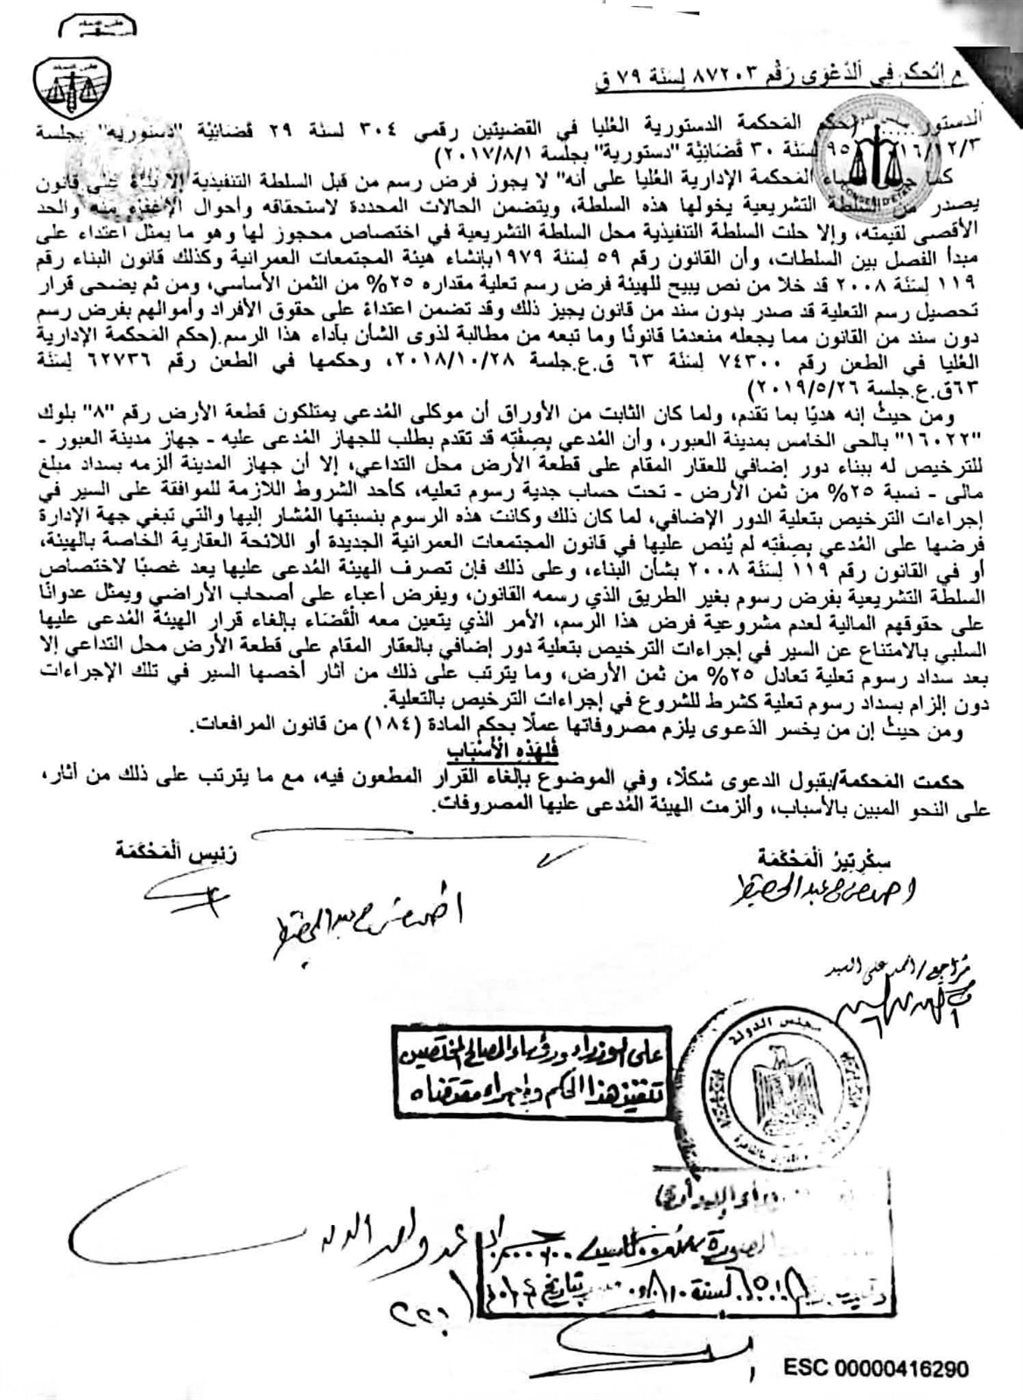 على المنصة
ع الحكم في الدَّعْوَى رَقْم ٨٧٢٠٣ لِسَنَة ٧٩ ق
الدستور حكم المَحكمة الدستورية العُليا في القضيتين رقمي ٣٠٤ لسنة ٢٩ قضَائِيَّة "دستورية" بجلسة
١٦/١٢/٣ ٩٥ لِسَنَة ٣٠ قضَائِيَّة "دستورية" بجلسة ٢٠١٧/٨/١)
كما المَحكمة الإدارية العُليا على أنه" لا يجوز فرض رسم من قبل السلطة التنفيذية إلا بناء على قانون
يصدر من السلطة التشريعية يخولها هذه السلطة، ويتضمن الحالات المحددة لاستحقاقه وأحوال الإعفاء منه والحد
الأقصى لقيمته، وإلا حلت السلطة التنفيذية محل السلطة التشريعية في اختصاص محجوز لها وهو ما يمثل اعتداء على
مبدأ الفصل بين السلطات، وأن القانون رقم ٥٩ لِسَنَة ١٩٧٩بإنشاء هيئة المجتمعات العمرانية وكذلك قانون البناء رقم
١١٩ لِسَنَة ٢٠٠٨ قد خلا من نص يبيح للهيئة فرض رسم تعلية مقداره ٢٥% من الثمن الأساسي، ومن ثم يضحى قرار
تحصيل رسم التعلية قد صدر بدون سند من قانون يجيز ذلك وقد تضمن اعتداءً على حقوق الأفراد وأموالهم بفرض رسم
دون سند من القانون مما يجعله منعدمًا قانونًا وما تبعه من مطالبة لذوى الشأن بأداء هذا الرسم.(حكم المَحكمة الإدارية
العُليا في الطعن رقم ٧٤٣٠٠ لِسَنَة ٦٣ ق.ع.جلسة ٢٠١٨/١٠/٢٨، وحكمها في الطعن رقم ٦٢٧٣٦ لِسَنَة
٦٣ق.ع.جلسة ٢٠١٩/٥/٢٦)
ومن حيثُ إنه هديًا بما تقدم، ولما كان الثابت من الأوراق أن موكلى المُدعي يمتلكون قطعة الأرض رقم "٨" بلوك
"١٦٠٢٢" بالحى الخامس بمدينة العبور، وأن المُدعي بصِفتِه قد تقدم بطلب للجهاز المُدعى عليه - جهاز مدينة العبور -
للترخيص له ببناء دور إضافي للعقار المقام على قطعة الأرض محل التداعي، إلا أن جهاز المدينة ألزمه بسداد مبلغ
مالى - نسبة ٢٥% من ثمن الأرض - تحت حساب جدية رسوم تعليه، كأحد الشروط اللازمة للموافقة على السير في
إجراءات الترخيص بتعلية الدور الإضافي، لما كان ذلك وكانت هذه الرسوم بنسبتها المُشار إليها والتي تبغي جهة الإدارة
فرضها على المُدعي بصِفتِه لم يُنص عليها في قانون المجتمعات العمرانية الجديدة أو اللائحة العقارية الخاصة بالهيئة،
أو في القانون رقم ١١٩ لِسَنَة ٢٠٠٨ بشأن البناء، وعلى ذلك فإن تصرف الهيئة المُدعى عليها يعد غصبًا لاختصاص
السلطة التشريعية بفرض رسوم بغير الطريق الذي رسمه القانون، ويفرض أعباء على أصحاب الأراضي ويمثل عدوانًا
على حقوقهم المالية لعدم مشروعية فرض هذا الرسم، الأمر الذي يتعين معه الْقَضَاء بإلغاء قرار الهيئة المُدعى عليها
السلبي بالامتناع عن السير في إجراءات الترخيص بتعلية دور إضافي بالعقار المقام على قطعة الأرض محل التداعى إلا
بعد سداد رسوم تعلية تعادل ٢٥% من ثمن الأرض، وما يترتب على ذلك من آثار أخصها السير في تلك الإجراءات
دون إلزام بسداد رسوم تعلية كشرط للشروع في إجراءات الترخيص بالتعلية.
ومن حيثُ إن من يخسر الدَعوى يلزم مصروفاتها عملًا بحكم المادة (١٨٤) من قانون المرافعات.
فَلِهَذِهِ الْأَسْبَاب
حكمت المَحكمة/بقبول الدعوى شكلًا، وفي الموضوع بإلغاء القرار المطعون فيه، مع ما يترتب على ذلك من آثار،
على النحو المبين بالأسباب، وألزمت الهيئة المُدعى عليها المصروفات.
سِكْرِتِيرُ الْمَحْكَمَة
رَئِيس الْمَحْكَمَة
مراجع/ أحمد على السيد
مجلس الدولة
على الوزراء ورؤساء المصالح المختصين
تنفيذ هذا الحكم وإجراء مقتضاه
ESC 00000416290